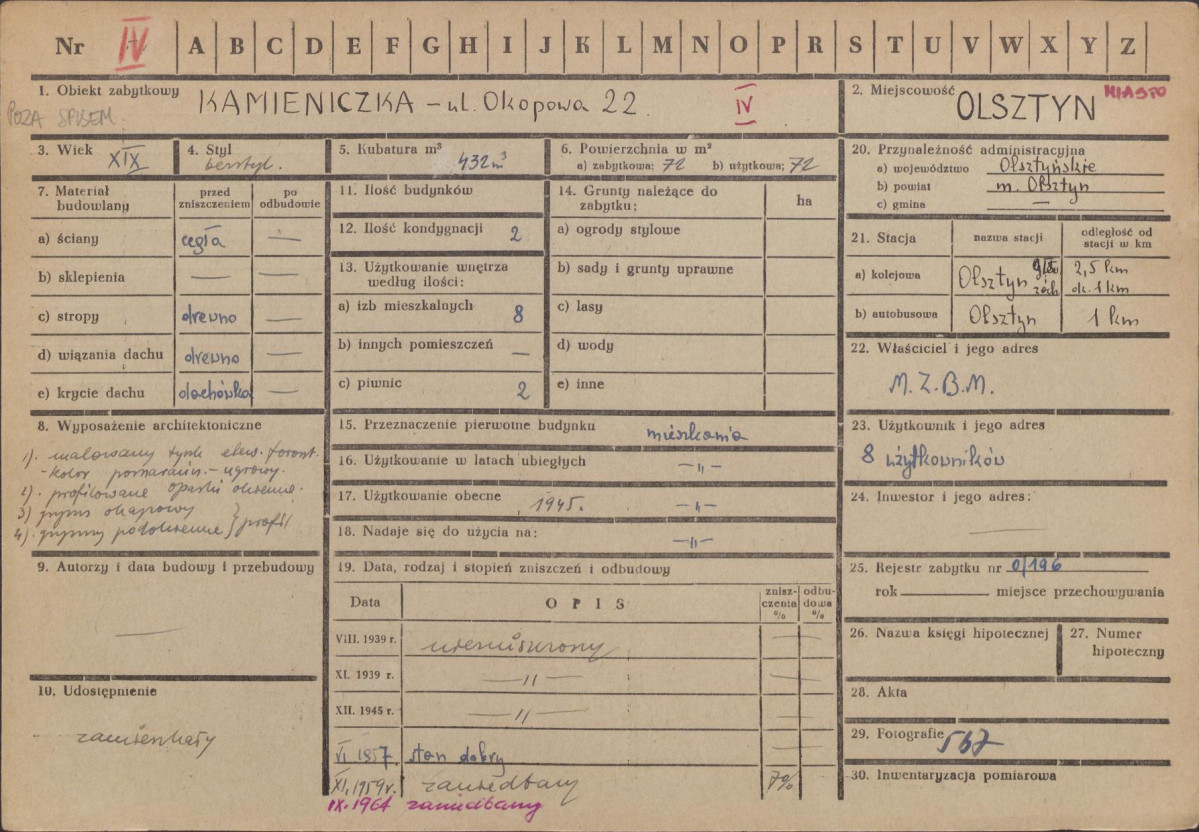 Nr IV A B C D E F G H I J K L M N O P R S T U V W X Y Z
1. Obiekt zabytkowy KAMIENICZKA – ul. Okopowa 22 IV
POZA SPISEM
2. Miejscowość OLSZTYN MIASTO
3. Wiek XIX
4. Styl bezstyl.
5. Kubatura m³ 432 m³
6. Powierzchnia w m²
a) zabytkowa: 72 b) użytkowa; 72
20. Przynależność administracyjna
a) województwo Olsztyńskie
b) powiat m. Olsztyn
c) gmina —
7. Materiał budowlany
przed zniszczeniem
po odbudowie
a) ściany cegła —
b) sklepienia — —
c) stropy drewno —
d) wiązania dachu drewno —
e) krycie dachu dachówka —
11. Ilość budynków
12. Ilość kondygnacji 2
13. Użytkowanie wnętrza
według ilości:
a) izb mieszkalnych 8
b) innych pomieszczeń —
c) piwnic 2
14. Grunty należące do
zabytku: ha
a) ogrody stylowe
b) sady i grunty uprawne
c) lasy
d) wody
e) inne
21. Stacja
nazwa stacji
odległość od
stacji w km
a) kolejowa Olsztyn gł. zach. 2,5 km
ok. 1 km
b) autobusowa Olsztyn 1 km
22. Właściciel i jego adres
M. Z. B. M.
8. Wyposażenie architektoniczne
1). malowany tynk elew. front.
- kolor pomarańcz. - ugrowy.
2). profilowane opaski okienne.
3) gzyms okapowy
4). gzymsy podokienne } profil
15. Przeznaczenie pierwotne budynku mieszkania
16. Użytkowanie w latach ubiegłych —„—
17. Użytkowanie obecne 1945. —„—
18. Nadaje się do użycia na: —„—
23. Użytkownik i jego adres
8 użytkowników
24. Inwestor i jego adres:
—
9. Autorzy i data budowy i przebudowy
—
10. Udostępnienie
zamieszkały
19. Data, rodzaj i stopień zniszczeń i odbudowy
Data OPIS znisz-
czenia
% odbu-
dowa
%
VIII. 1939 r. niezniszczony — —
XI. 1939 r. —„— — —
XII. 1945 r. —„— —
VI 1957. stan dobry —
XI. 1959 r. zaniedbany 7%
IX. 1964 zaniedbany
25. Rejestr zabytku nr 0/196
rok miejsce przechowywania
26. Nazwa księgi hipotecznej
27. Numer
hipoteczny
28. Akta
29. Fotografie 567
30. Inwentaryzacja pomiarowa